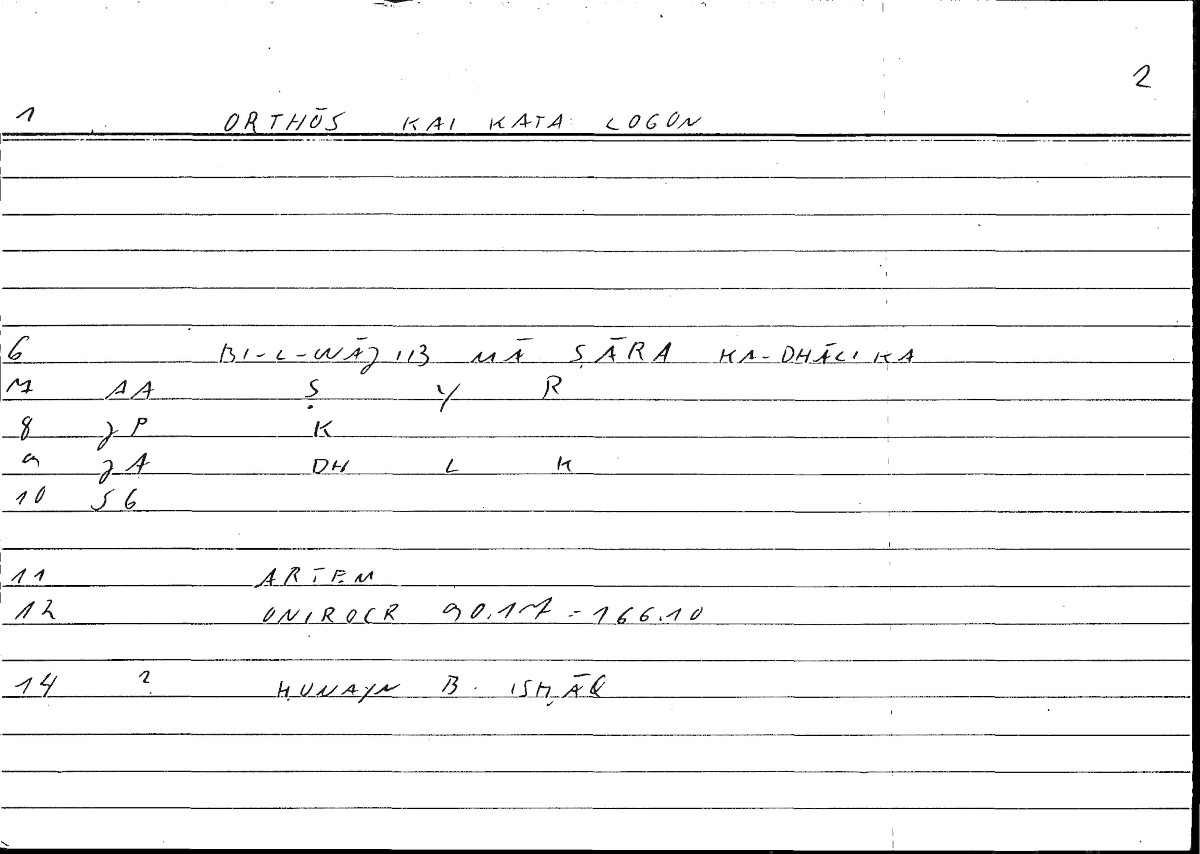 2
1 ORTHŌS KAI KATA LOGON
6 BI-L-WĀJIB MĀ ṢĀRA KA-DHĀLIKA
7 AA Ṣ Y R
8 JP K
9 JA DH L K
10 SG
11 ARTEM
12 ONIROCR 90.17 = 166.10
14 ? ḤUNAYN B. ISḤĀQ